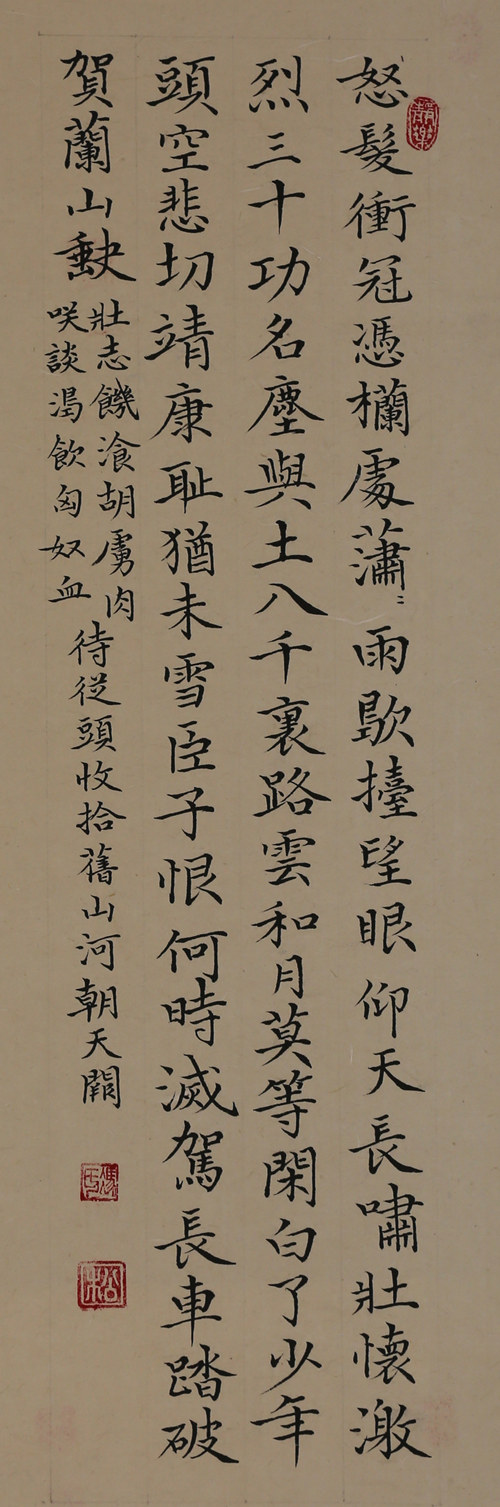 怒髮衝冠憑欄處瀟〻雨歇擡望眼仰天長嘯壯懷激
烈三十功名塵與土八千裏路雲和月莫等閑白了少年
頭空悲切靖康耻猶未雪臣子恨何時滅駕長車踏破
賀蘭山缺
壯志饑湌胡虜肉
咲談渴飲匈奴血
待從頭收拾舊山河朝天闕